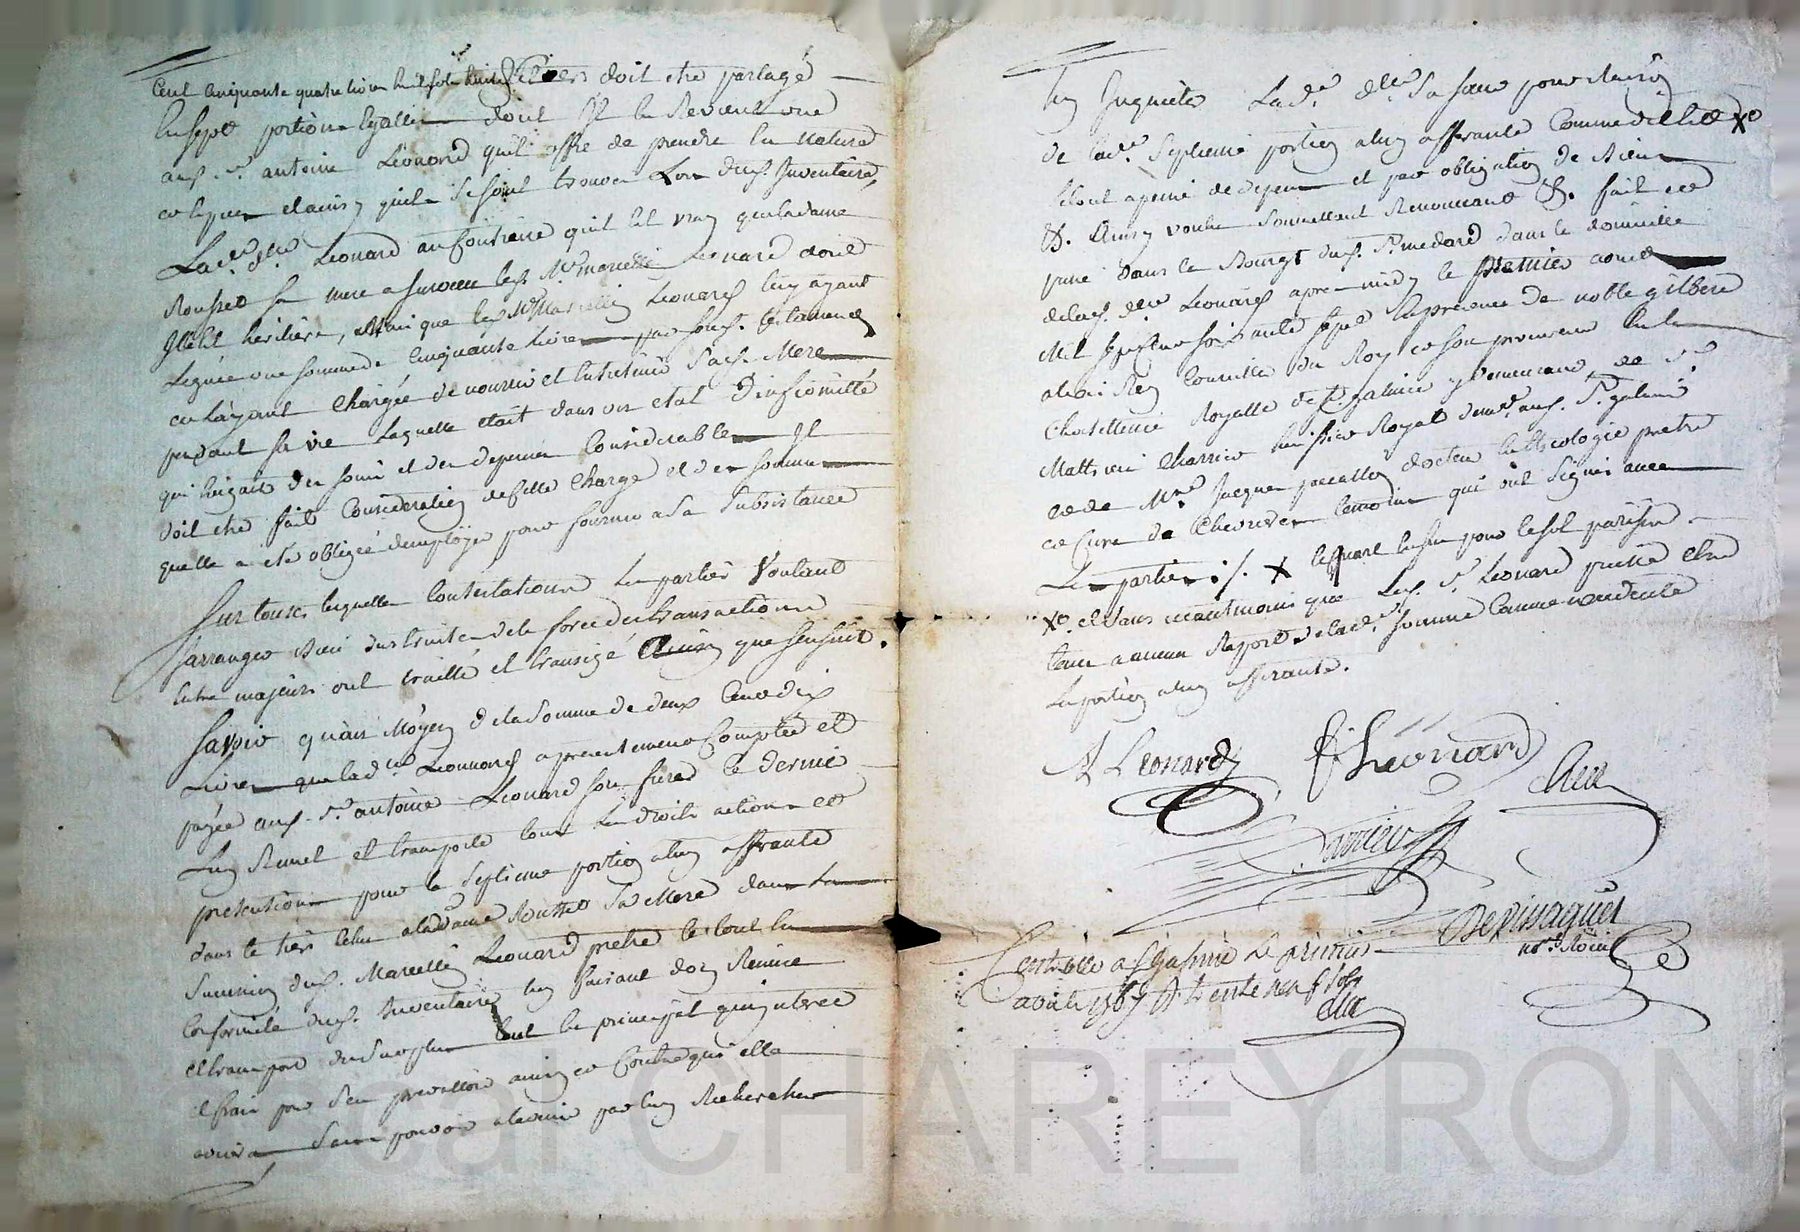 Cent Cinquante quatre livres huit sols huit deniers doit etre partagé
En sept portions Egalles dont Il En Revient une
aud. Sr. antoine Léonard qu'il offre de prendre En Nature
ce lequel etainsy quils se sont trouvés Lors dud. Inventaire,
Lad. dlle. Leonard au Contraire quil Est vray que la dame
Rousset sa mere a survecu led. Mre. marcellin Leonard dont
Il Est heritiere, Mais que led. Mre Marcellin Léonard luy ayant
Legué une somme de Cinquante livres par son testament
en layant Chargée de nourrir et Entretenir Sad. Mere
pendant sa vie Laquelle etoit dans un etat D'infirmitté
qui Exigeait des soins et des depences Considerables Il
doit etre fait Consideration de cette Charge et des sommes
quelle a eté obligée demployer pour fournir a Sa Subsistance
Sur toutes lesquelles Contestations Les parties Voulant
Sarranger Bien Instruites de la force des transactions
Entre majeurs ont traitté et transigé Ainsy que sensuit.
Savoir qu'au Moyen de la Somme de deux Cent dix
Livres que lad. dlle Leonard a presentement Comptée et
payée aud. Sr. antoine Leonard son frere Ce dernier
Luy Remet et transporte tous Les droits actions et
pretentions pour la Septieme portion a luy afferante
dans le tiers Echu a la dame Rousset Sa Mere dans La
Succession dud. Marcellin Leonard pretre le tout En
Conformité dud. Inventaire luy faisant don Remise
et transport du Surplus tant En principal quinterets
et frais pour s'en prevalloir ainsy et Contre qui elle
avisera Sans pouvoir a lavenir par luy Rechercher
Ny Inquieter Lad. dlle. Sa sœur pour Raison
de lad. Septieme portion a luy afferante Comme dit Est X
Le tout a peine de depens et par obligation de Biens
&. Ainsy voulu Soumettant Renoncant &. fait et
passé dans le Bourg dud. St. medard dans le domicille
de lad. dlle Leonard apres midy le premier aout
Mil Sept Cent soixante sept En presence de noble gilbert
alexis Rey Conseiller du Roy et son procureur En la
Chatellenie Royalle de St. galmier y demeurant, de Sr.
Matthieu Charrier huissier Royal demt. aud. St. galmier
et de Mre. Jacques pacallon docteur En theologie pretre
et Curé de Chevrieres temoins qui ont Signé avec
Les parties ./. X
X et sans neantmoins que Led. Sr Leonard puisse Etre
tenu a aucun Rapport de lad. Somme Comme excedente
La portion a luy afferante.
A Leonard F Léonard
Rey
Charrier
Devissaguet
not. Royal
Contrôlé a St Galmier Le premier
aoust 1767 R. trente neuf sols
Rey
Pascal CHAREYRON